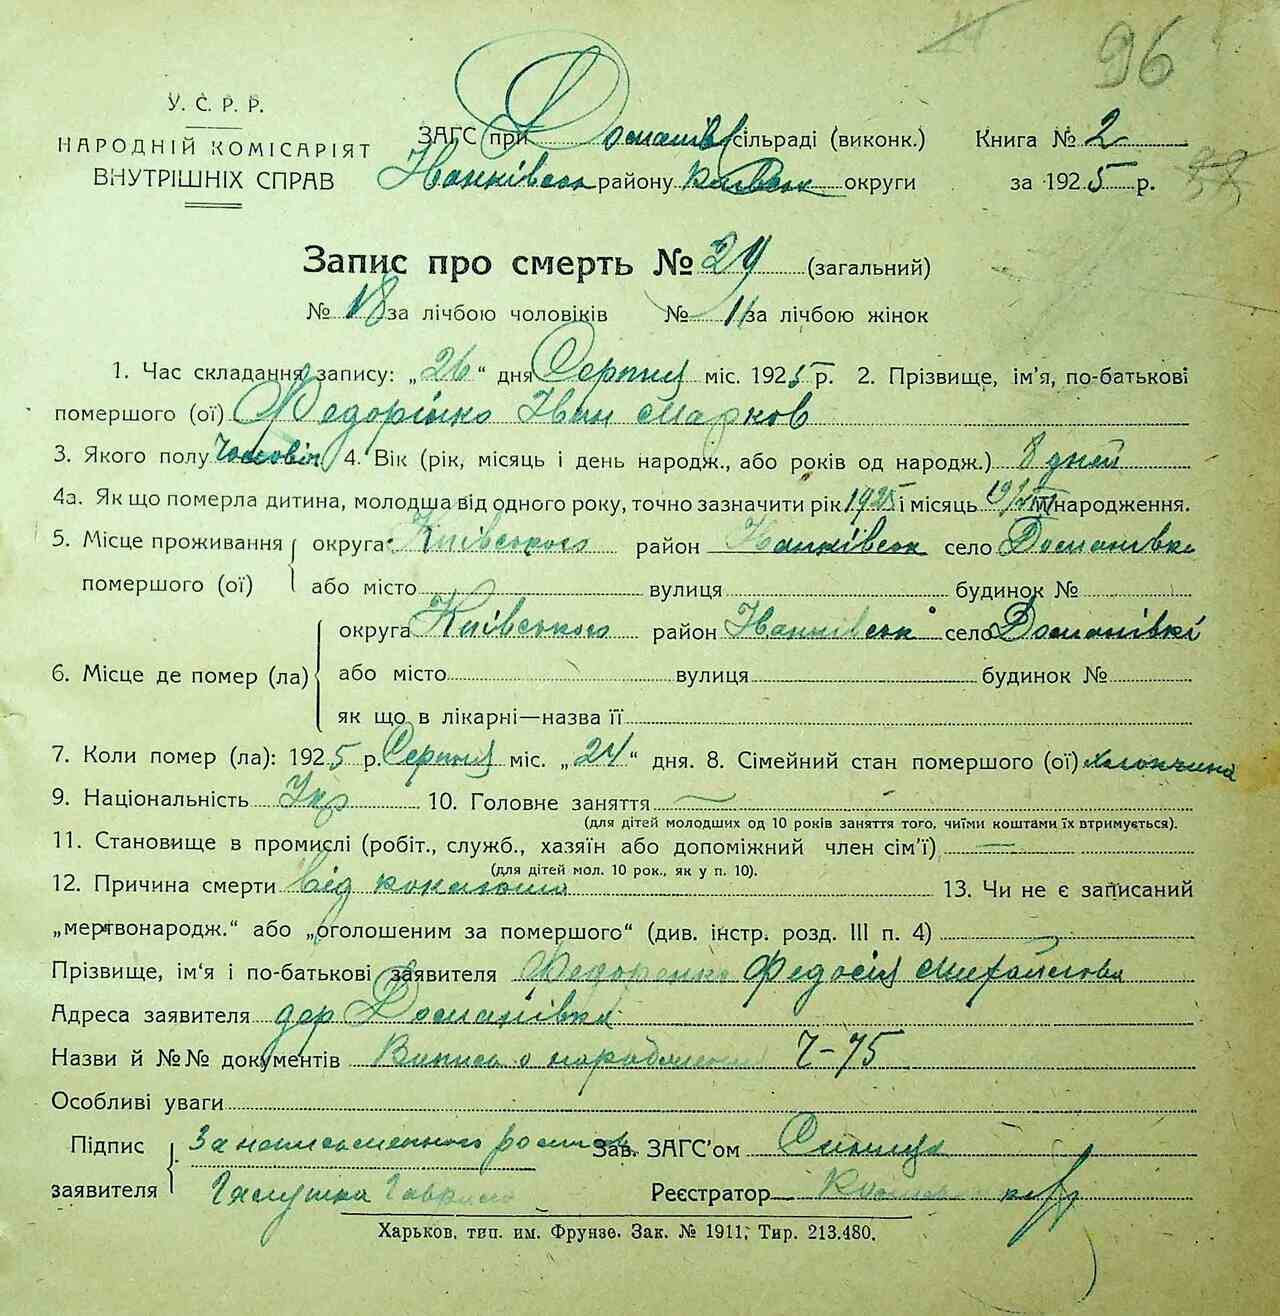 96
У. С. Р. Р.
НАРОДНІЙ КОМІСАРІЯТ
ВНУТРІШНІХ СПРАВ
ЗАГС при Доманів сільраді (виконк.)
Іванківськ району Київськ округи
Книга № 2
за 1925 р.
Запис про смерть № 29 (загальний)
№ 18 за лічбою чоловіків № 11 за лічбою жінок
1. Час складання запису: „26“ дня Серпня міс. 1925 р. 2. Прізвище, ім'я, по-батькові
помершого (ої) Федорінко Іван Марков
3. Якого полу Чоловіч. 4. Вік (рік, місяць і день народж., або років од народж.) 8 дней
4а. Як що померла дитина, молодша від одного року, точно зазначити рік 1925 і місяць народження.
5. Місце проживання помершого (ої) округа Київського район Іванківськ село Доманівка
або місто вулиця будинок №
6. Місце де помер (ла) округа Київського район Іванківськ село Доманівкі
або місто вулиця будинок №
як що в лікарні—назва її
7. Коли помер (ла): 1925 р. Серпня міс. „24“ дня. 8. Сімейний стан помершого (ої) хлопчина
9. Національність Укр 10. Головне заняття —
(для дітей молодших од 10 років заняття того, чиїми коштами їх втримується).
11. Становище в промислі (робіт., служб., хазяїн або допоміжний член сім'ї) —
(для дітей мол. 10 рок., як у п. 10).
12. Причина смерти Від 13. Чи не є записаний
„мертвонародж.“ або „оголошеним за помершого“ (див. інстр. розд. III п. 4)
Прізвище, ім'я і по-батькові заявителя Федоренко Федосія Михайлова
Адреса заявителя дер Доманівка
Назви й №№ документів Випись о народженія Ч-75
Особливі уваги
Підпис заявителя За неписьменного
Галушка Гаврило
Зав. ЗАГС'ом Синиця
Реєстратор
Харьков, тип. им. Фрунзе. Зак. № 1911; Тир. 213.480.